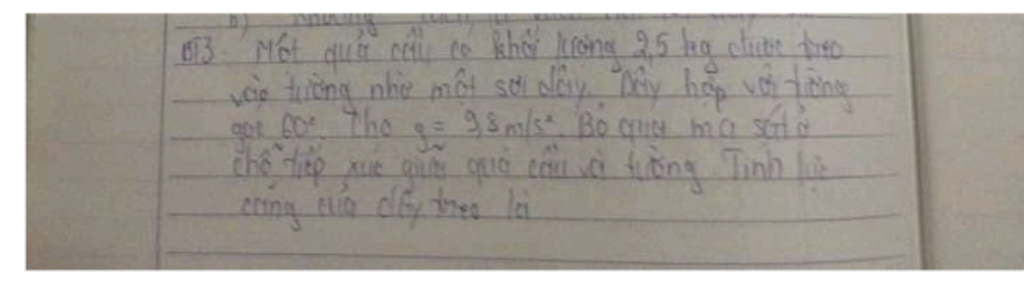 BT3. Một quả cầu có khối lượng 2,5 kg được treo
vào tường nhờ một sợi dây. Dây hợp với tường
góc 60°. Cho g = 9,8 m/s². Bỏ qua ma sát ở
chỗ tiếp xúc giữa quả cầu và tường. Tính lực
căng của dây treo là